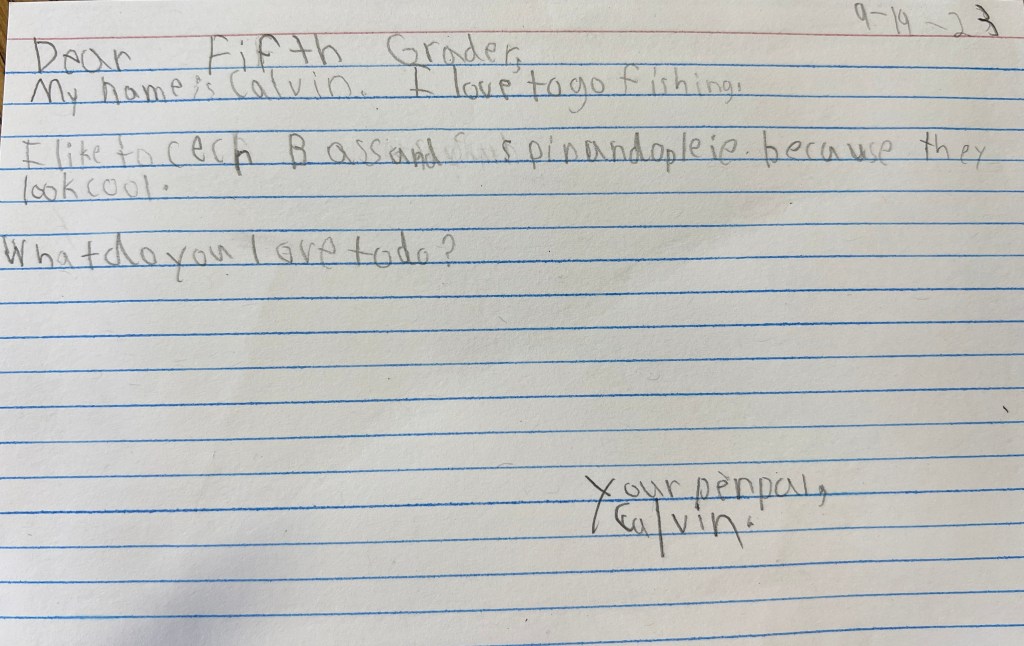 9-19-23
Dear Fifth Grader,
My name is Calvin. I love to go fishing.
I like to cech Bass and spin and opleie. because they
look cool.
What do you love to do?
Your penpal,
Calvin.